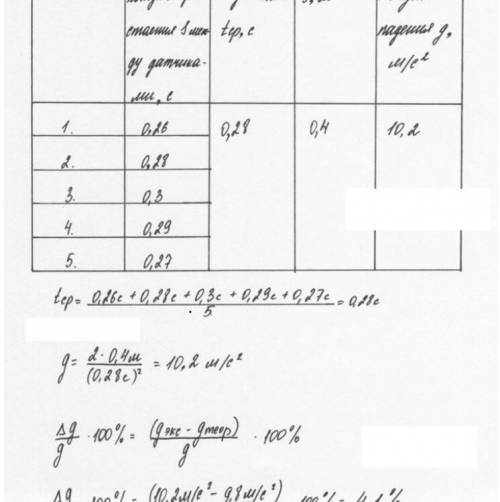 стояния S меж-
ду датчика-
ми, с
tср, с
падения g,
м/с²
1. 0,26 0,28 0,4 10,2
2. 0,28
3. 0,3
4. 0,29
5. 0,27
tср = 0,26с + 0,28с + 0,3с + 0,29с + 0,27с / 5 = 0,28с
g = 2·0,4м / (0,28с)² = 10,2 м/с²
Δg / g · 100% = (gэкс - gтеор) / g · 100%
Δg · 100% = (10,2м/с² - 9,8м/с²) · 100% = 4,1%